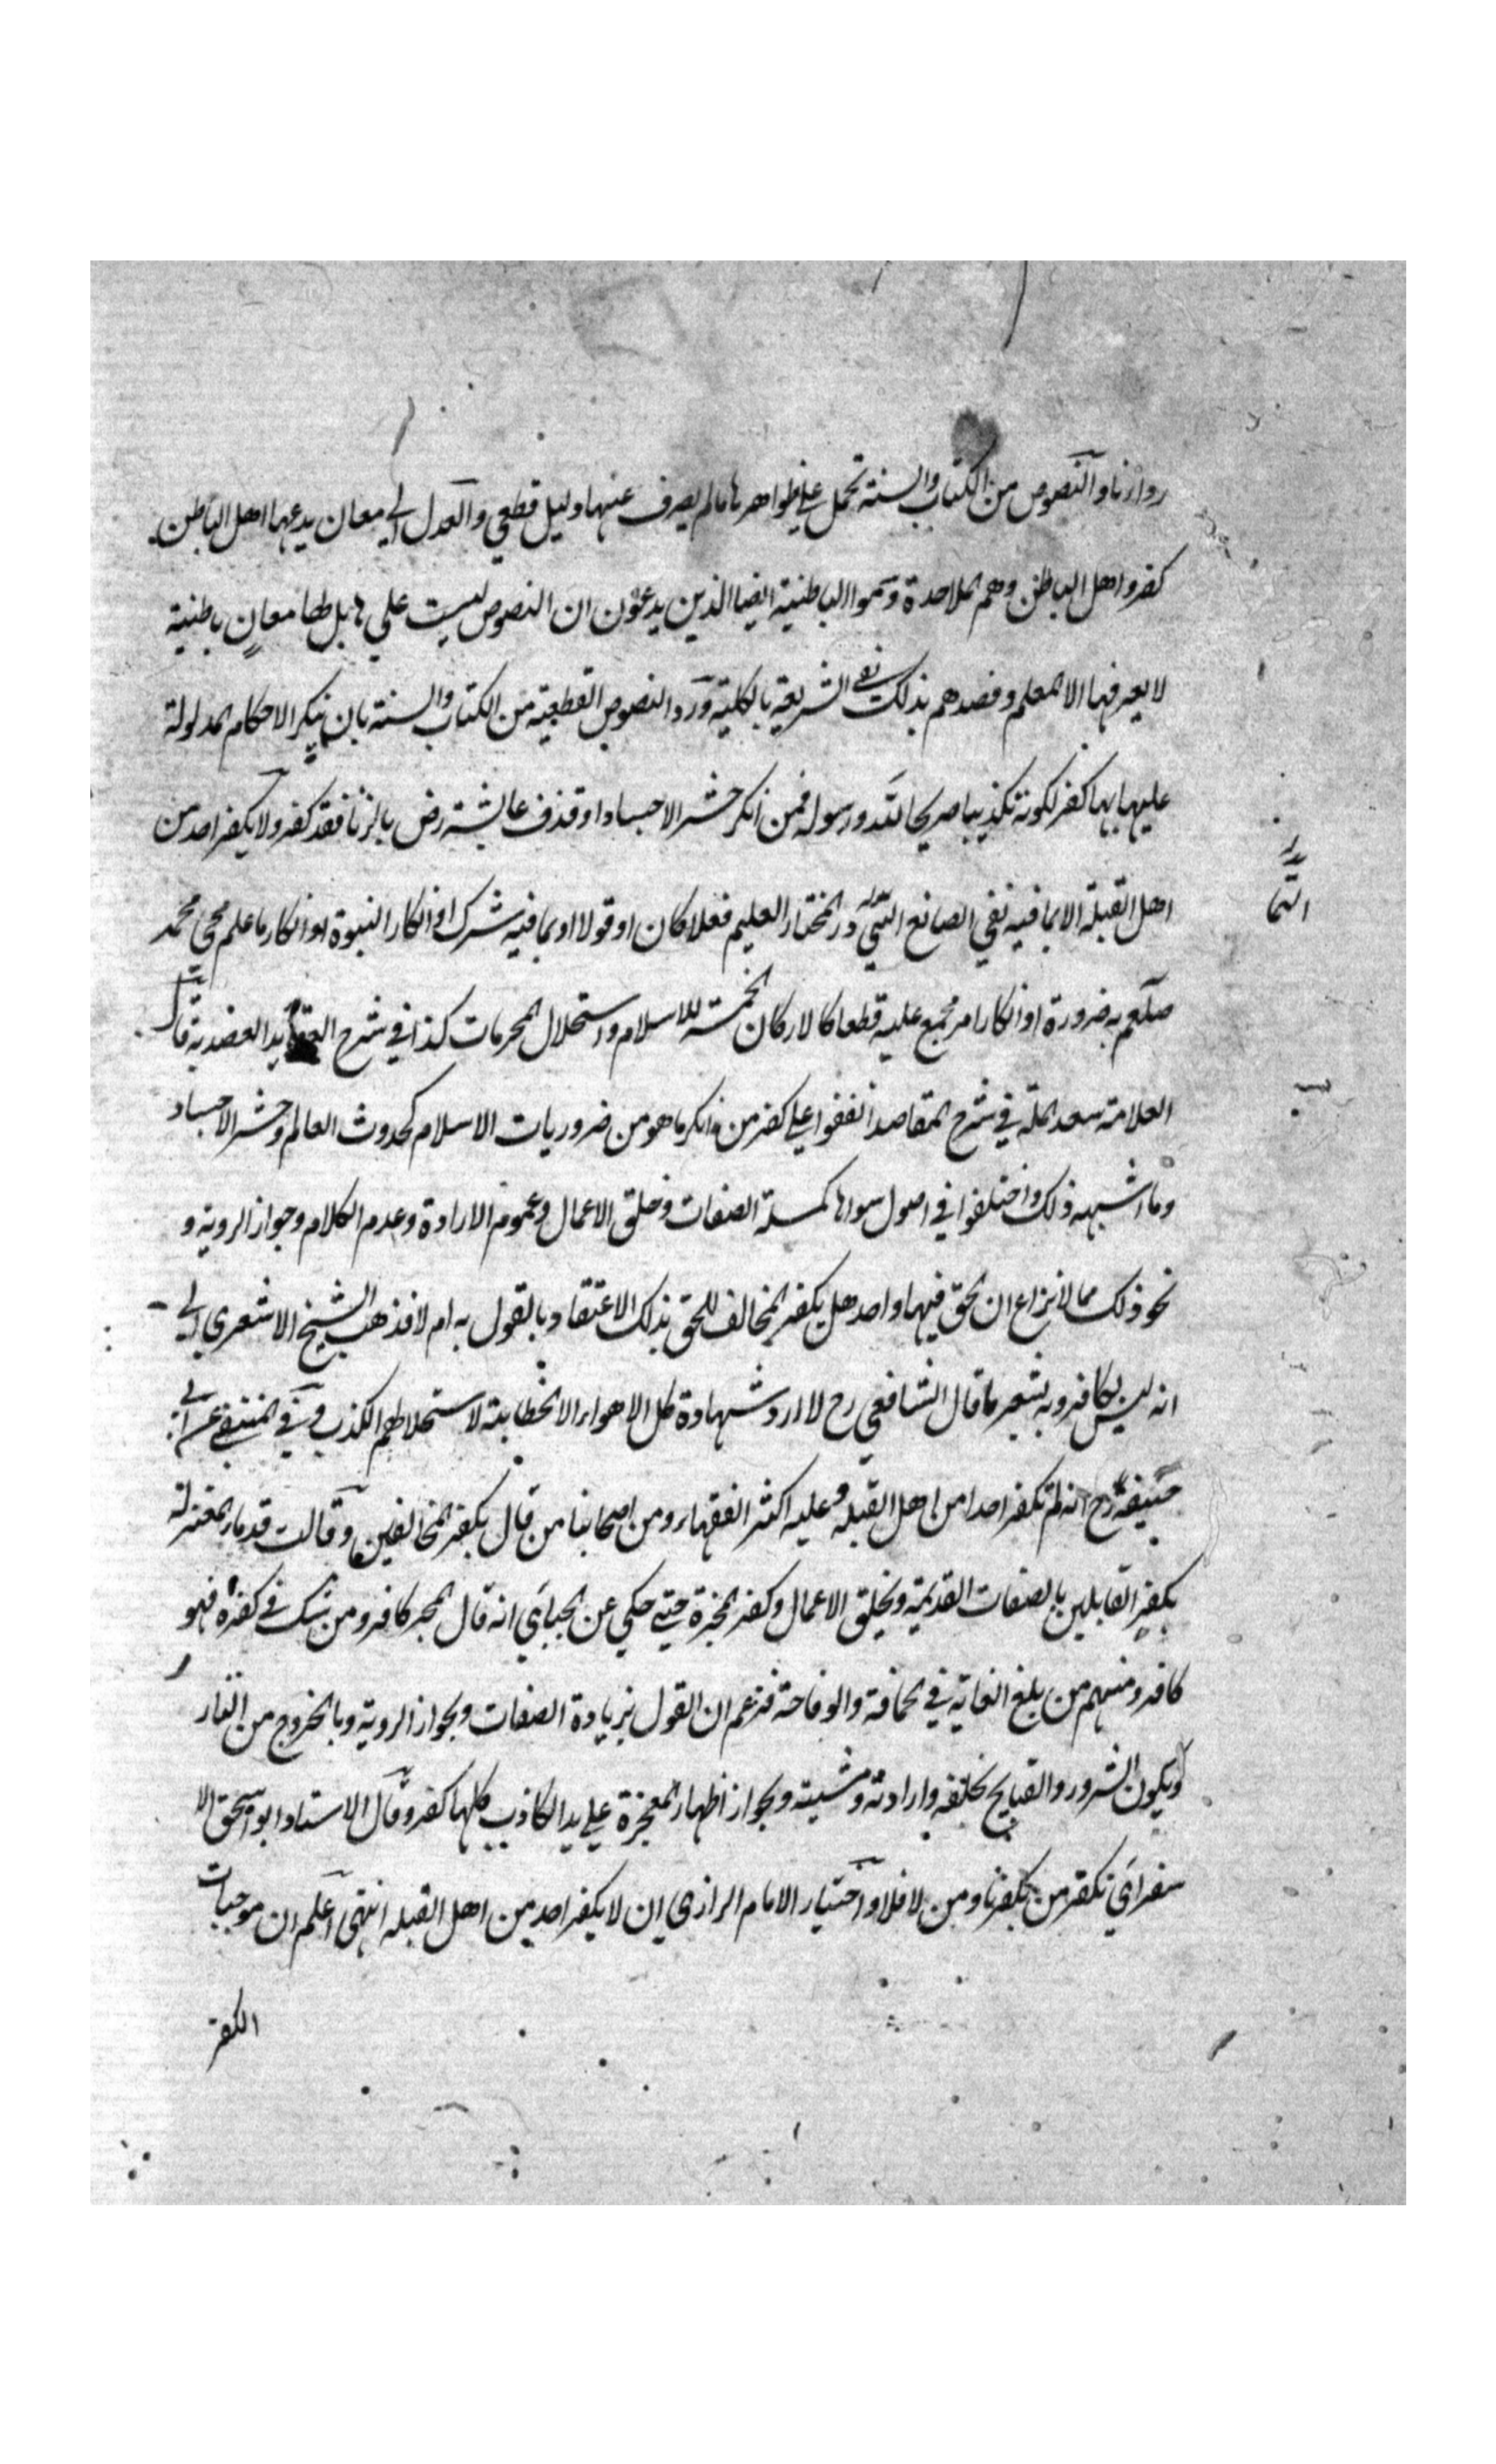 روازناو النصوص من الكتاب والسنة تحمل علي ظواهرها مالم يصرف عنها دليل قطعي والعدل الي معان يدعيها اهل الباطن
كفرو اهل الباطن وهم الملاحدة وسموا الباطنية ايضا الذين يدعون ان النصوص ليست علي ها بل لها معانٍ باطنية
لا يعرفها الا المعلم وقصدهم بذلك نفي الشريعة بالكلية ورد النصوص القطعية من الكتاب والسنة بان ينكر الاحكام المدلولة
عليها بها كفر لكونه تكذيبا صريحا لله ورسوله فمن انكر حشر الاجساد او قذف عايشة رض بالزنا فقد كفر ولا يكفر احد من
اهل القبلة الا بما فيه نفي الصانع القادر المختار العليم فعلا كان او قولا او بما فيه شرك او انكار النبوة او انكار ما علم مجي محمد
صلعم به ضرورة او انكار امر مجمع عليه قطعا كالاركان الخمسة للاسلام واستحلال المحرمات كذا في شرح العقايد العضدية قال
العلامة سعد الملة في شرح المقاصد اتفقوا علي كفر من انكر ما هو من ضروريات الاسلام كحدوث العالم وحشر الاجساد
وما اشبه ذلك واختلفوا في اصول سواها كمسئلة الصفات وخلق الاعمال وعموم الارادة وعدم الكلام وجواز الروية و
نحو ذلك مما لا نزاع ان الحق فيها واحد هل يكفر المخالف للحق بذلك الاعتقاد وبالقول به ام لا فذهب الشيخ الاشعري الي
انه ليس بكافر وبه يشعر ما قال الشافعي رح لا ارد شهادة اهل الاهواء الا الخطابية لاستحلالهم الكذب وفي المنتقي عن ابي
حنيفة رح انه لم يكفر احدا من اهل القبلة وعليه اكثر الفقهاء ومن اصحابنا من قال بكفر المخالفين وقالت قدماء المعتزلة
بكفر القايلين بالصفات القديمة وبخلق الاعمال وكفر المجبرة حتي حكي عن الجبائي انه قال المجبر كافر ومن شك في كفره فهو
كافر ومنهم من بلغ الغاية في الحماقة والوقاحة فزعم ان القول بزيادة الصفات وبجواز الروية وبالخروج من النار
وبكون الشرور والقبايح بخلقه وارادته ومشيته وبجواز اظهار المعجزة علي يد الكاذب كلها كفر وقال الاستاد ابو اسحق الا
سفرائي نكفر من يكفرنا ومن لا فلا واختيار الامام الرازي ان لا يكفر احد من اهل القبله انتهي اعلم ان موجبات
الكفر